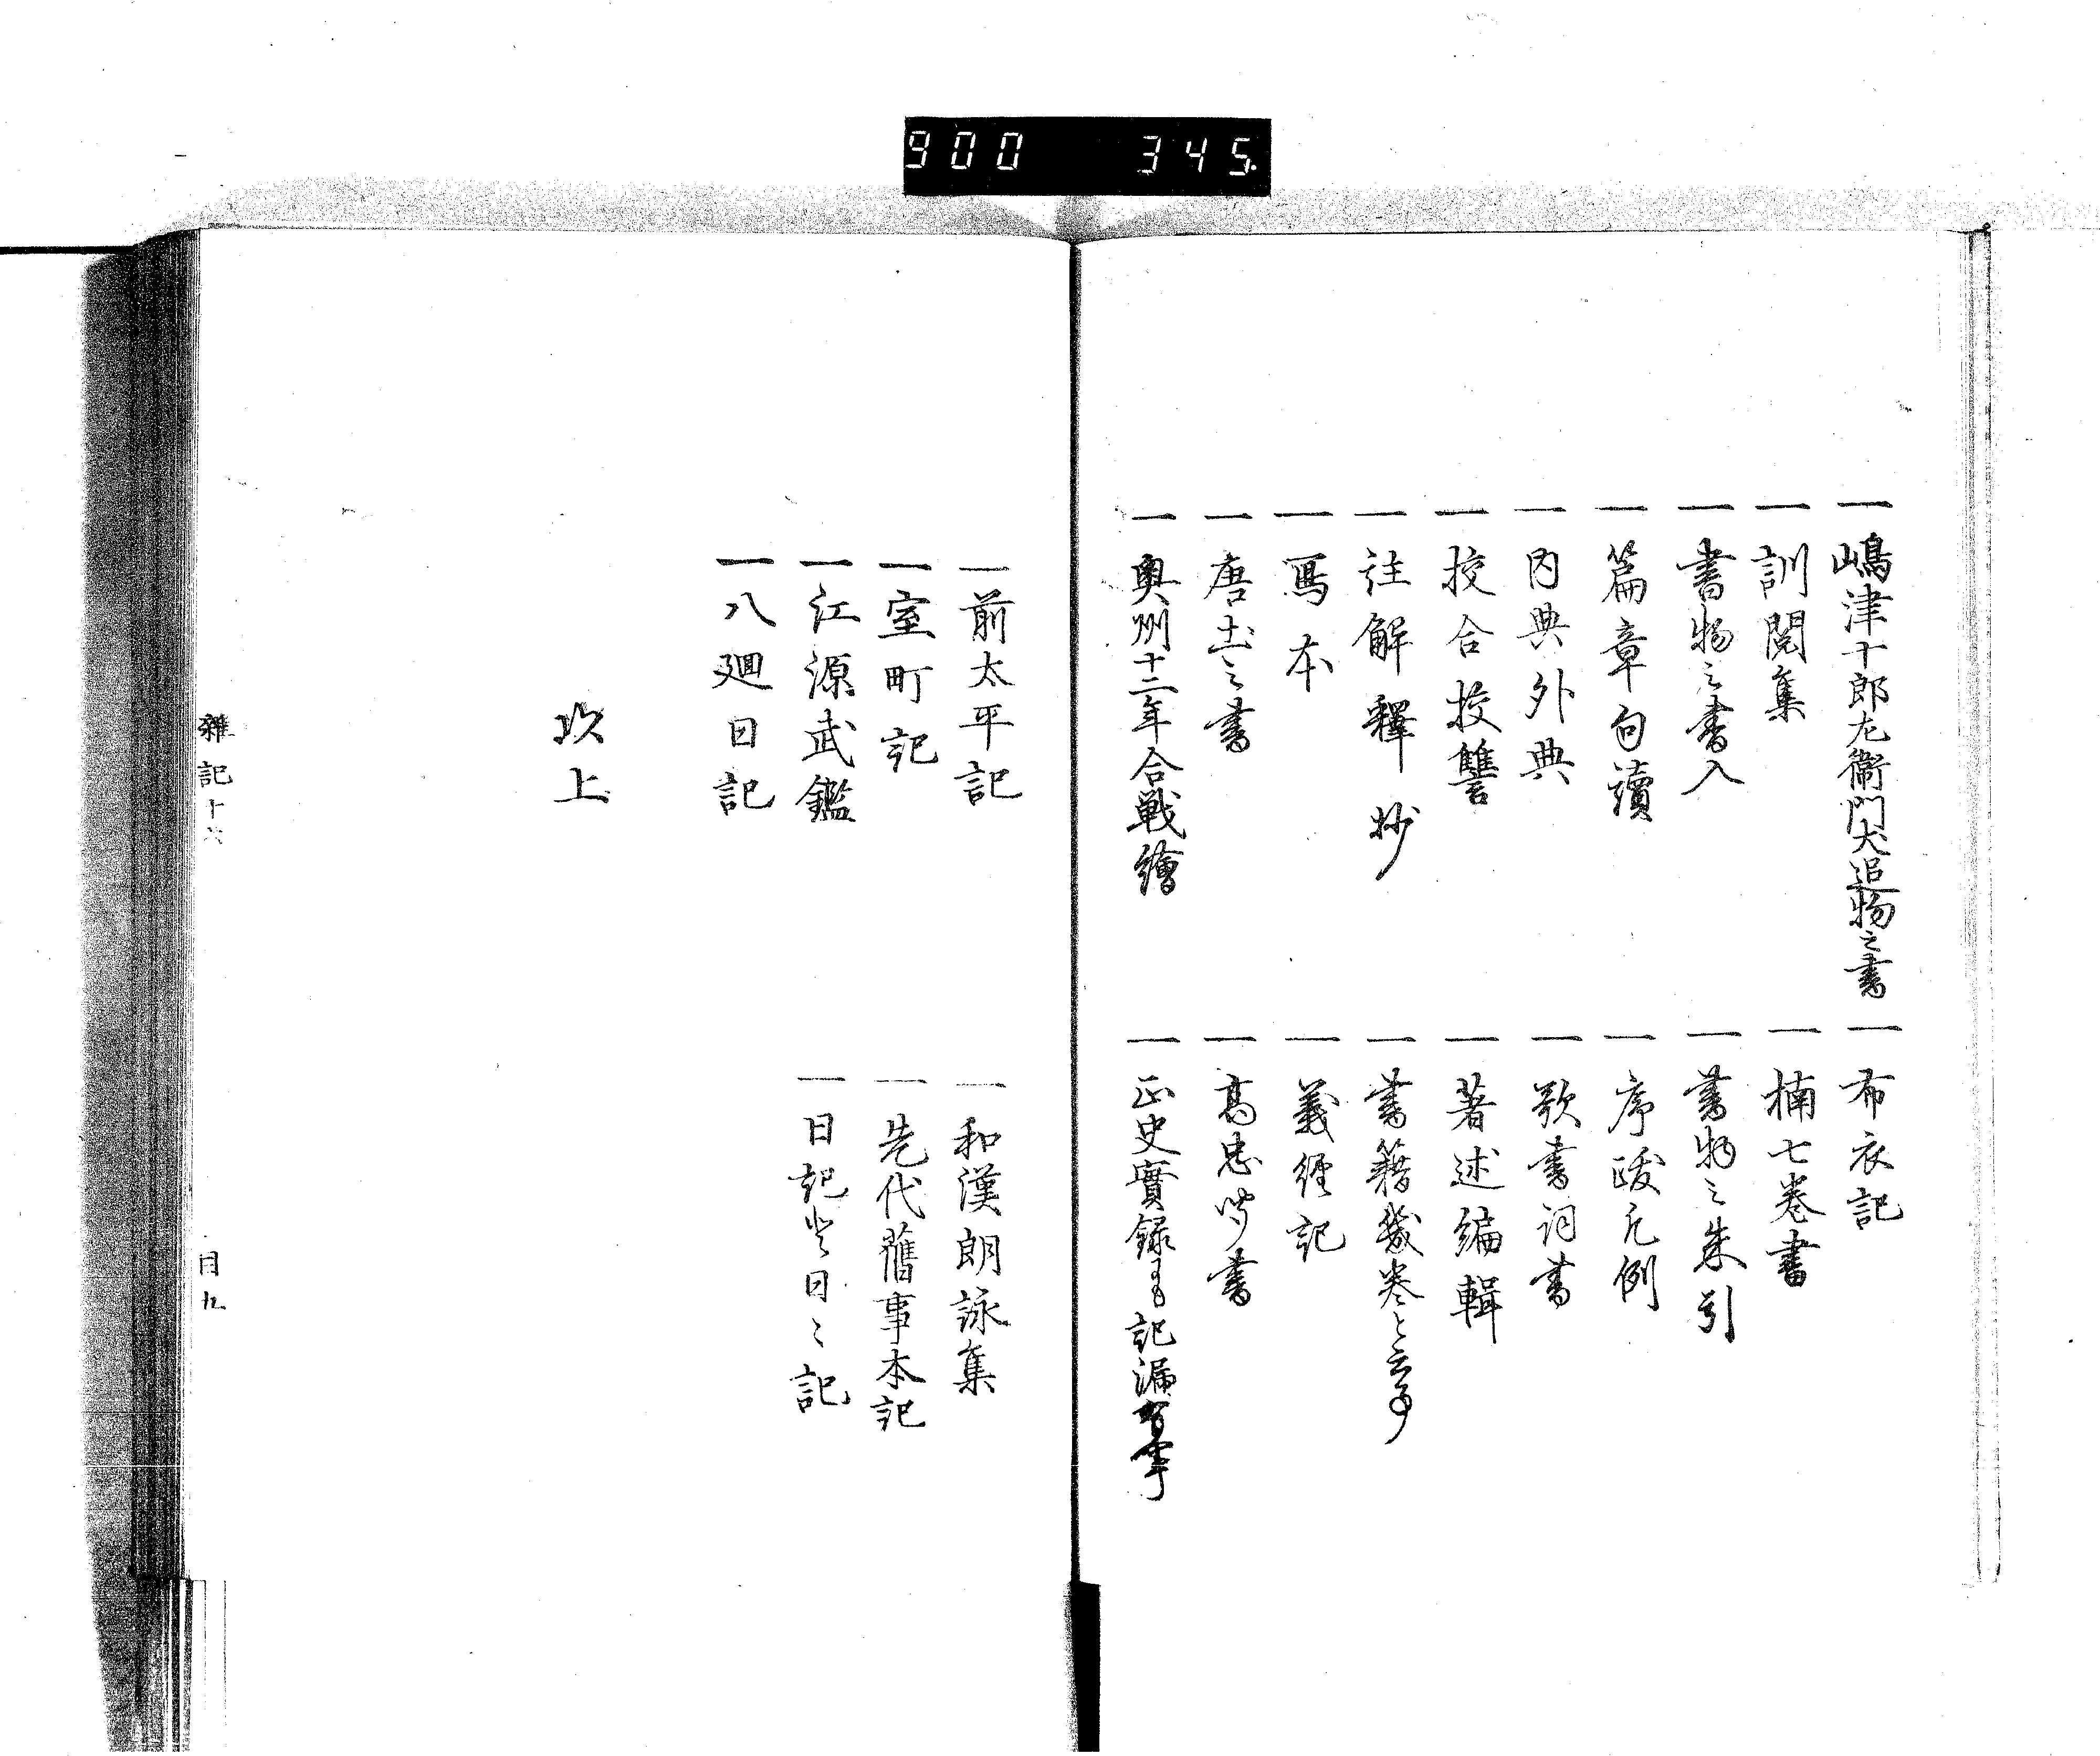 900 345
一嶋津十郎左衛門犬追物之書
一布衣記
一訓閲集
一楠七巻書
一書物之書入
一書物之朱引
一篇章句讀
一序跋凡例
一内典外典
一歌書詞書
一挍合挍讐
一著述編輯
一註解釋抄
一書籍幾巻と云事
一寫本
一義経記
一唐土之書
一髙忠聞書
一奥州十二年合戦繪
一正史實録にも記漏有事
一前太平記
一和漢朗詠集
一室町記
一先代舊事本記
一江源武鑑
一日記と日々記
一八廻日記
以上
雜記十六
目九